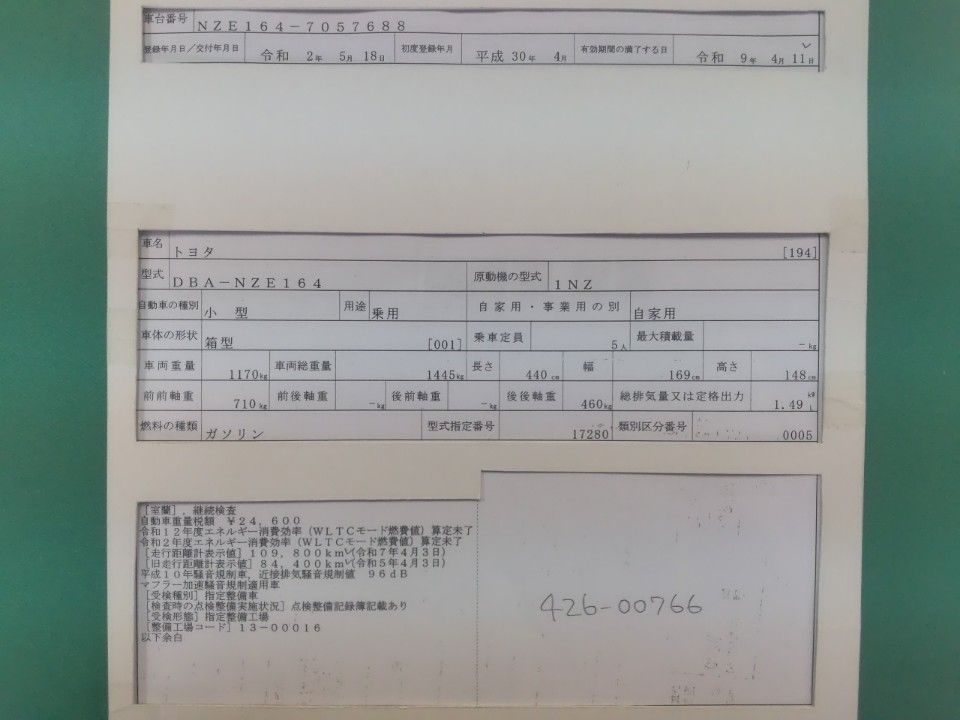 車台番号 NZE164-7057688
登録年月日/交付年月日 令和 2年 5月 18日 初度登録年月 平成 30年 4月 有効期間の満了する日 令和 9年 4月 11日
車名 トヨタ [194]
型式 DBA-NZE164 原動機の型式 1NZ
自動車の種別 小型 用途 乗用 自家用・事業用の別 自家用
車体の形状 箱型 [001] 乗車定員 5人 最大積載量 -kg
車両重量 1170kg 車両総重量 1445kg 長さ 440cm 幅 169cm 高さ 148cm
前前軸重 710kg 前後軸重 -kg 後前軸重 -kg 後後軸重 460kg 総排気量又は定格出力 1.49 kW L
燃料の種類 ガソリン 型式指定番号 17280 類別区分番号 0005
[室蘭],継続検査
自動車重量税額 ¥24,600
令和12年度エネルギー消費効率(WLTCモード燃費値)算定未了
令和2年度エネルギー消費効率(WLTCモード燃費値)算定未了
[走行距離計表示値]109,800km(令和7年4月3日)
[旧走行距離計表示値]84,400km(令和5年4月3日)
平成10年騒音規制車,近接排気騒音規制値 96dB
マフラー加速騒音規制適用車
[受検種別]指定整備車
[検査時の点検整備実施状況]点検整備記録簿記載あり
[受検形態]指定整備工場
[整備工場コード]13-00016
以下余白
426-00766